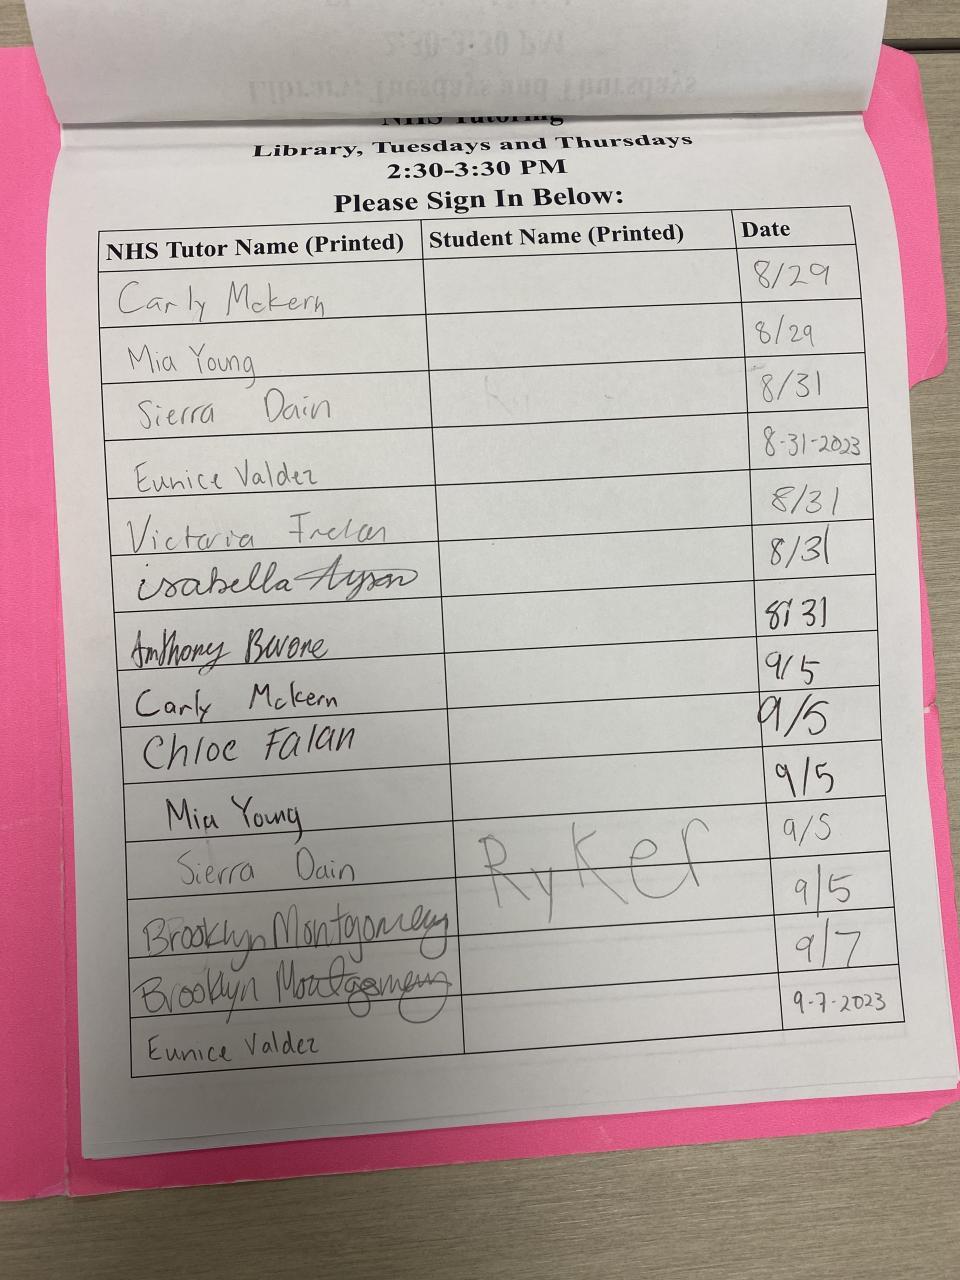 2:30-3:30 PM
Library, Tuesdays and Thursdays
NHS Tutoring
Library, Tuesdays and Thursdays
2:30-3:30 PM
Please Sign In Below:
NHS Tutor Name (Printed) Student Name (Printed) Date
Carly Mckern 8/29
Mia Young 8/29
Sierra Dain 8/31
Eunice Valdez 8-31-2023
Victoria 8/31
isabella 8/31
Anthony 8/31
Carly Mckern 9/5
Chloe Falan 9/5
Mia Young 9/5
Sierra Dain Ryker 9/5
Brooklyn Montgomery 9/5
Brooklyn Montgomery 9/7
Eunice Valdez 9-7-2023